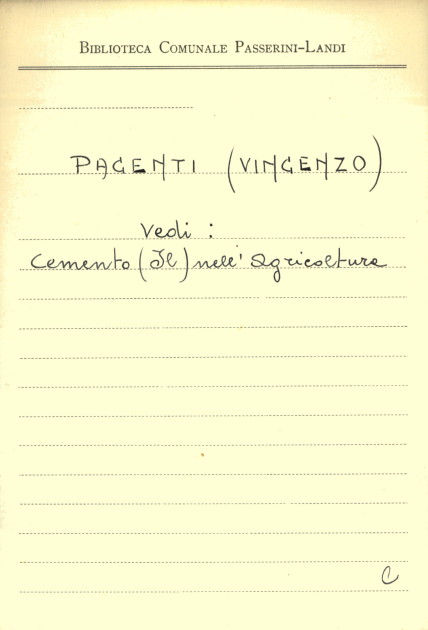 BIBLIOTECA COMUNALE PASSERINI-LANDI
PACENTI (VINCENZO)
Vedi :
Cemento (Il) nell' Agricoltura
C